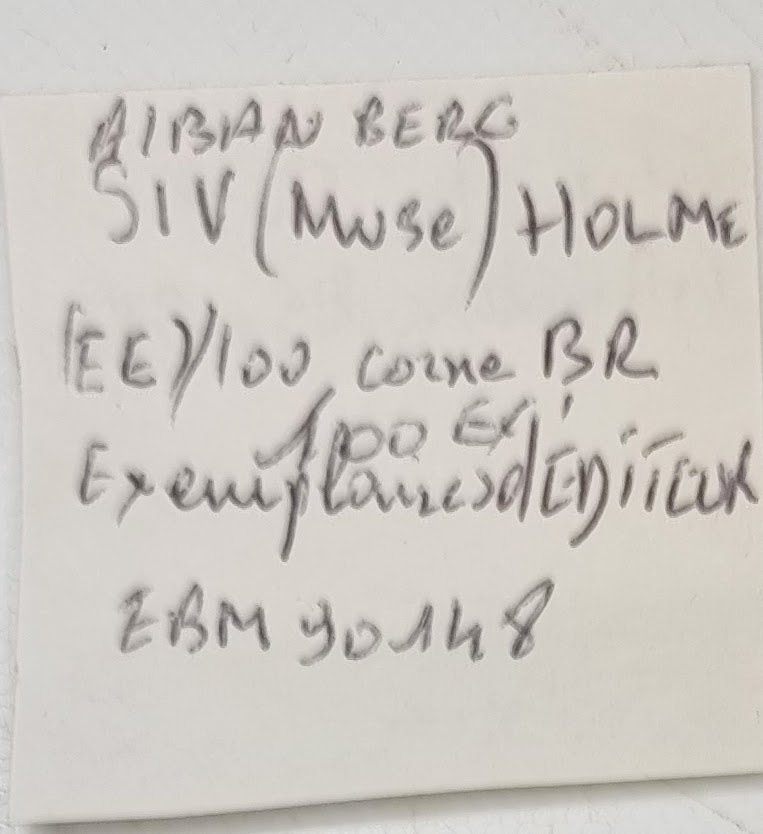 AlBAN BERG
SIV (Muse) HOLME
(EE)/100 corne BR
100 Ex
Exemplaires d'EDITEUR
EBM 90148